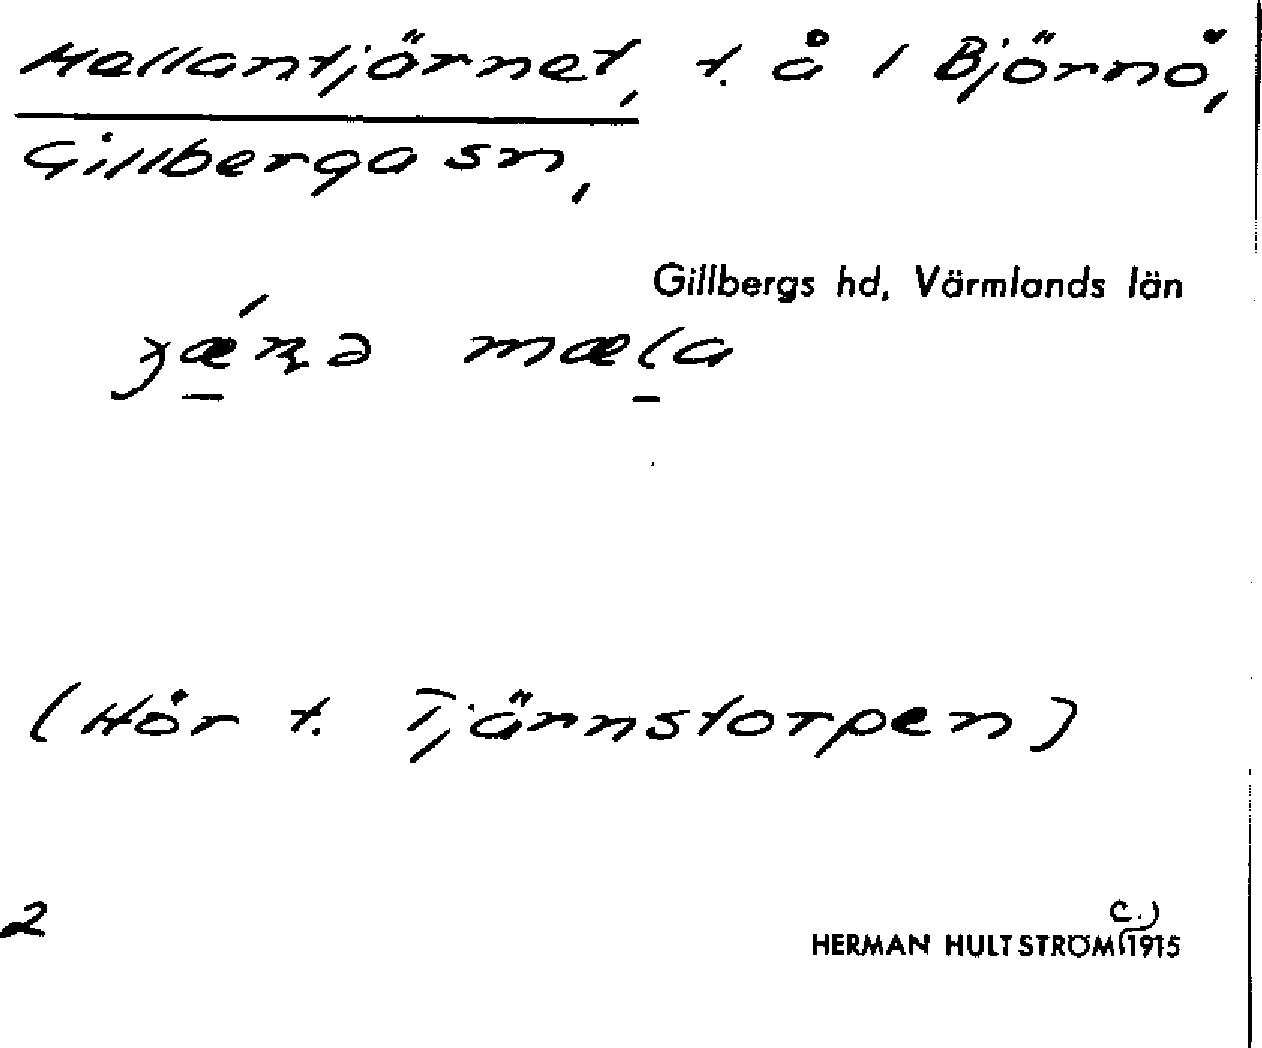 Mellantjärnet, t. å / Björnö,
Gillberga sn,
Gillbergs hd, Värmlands län
(Hör t. Tjärnstorpen)
2
c.)
HERMAN HULTSTRÖM (1915